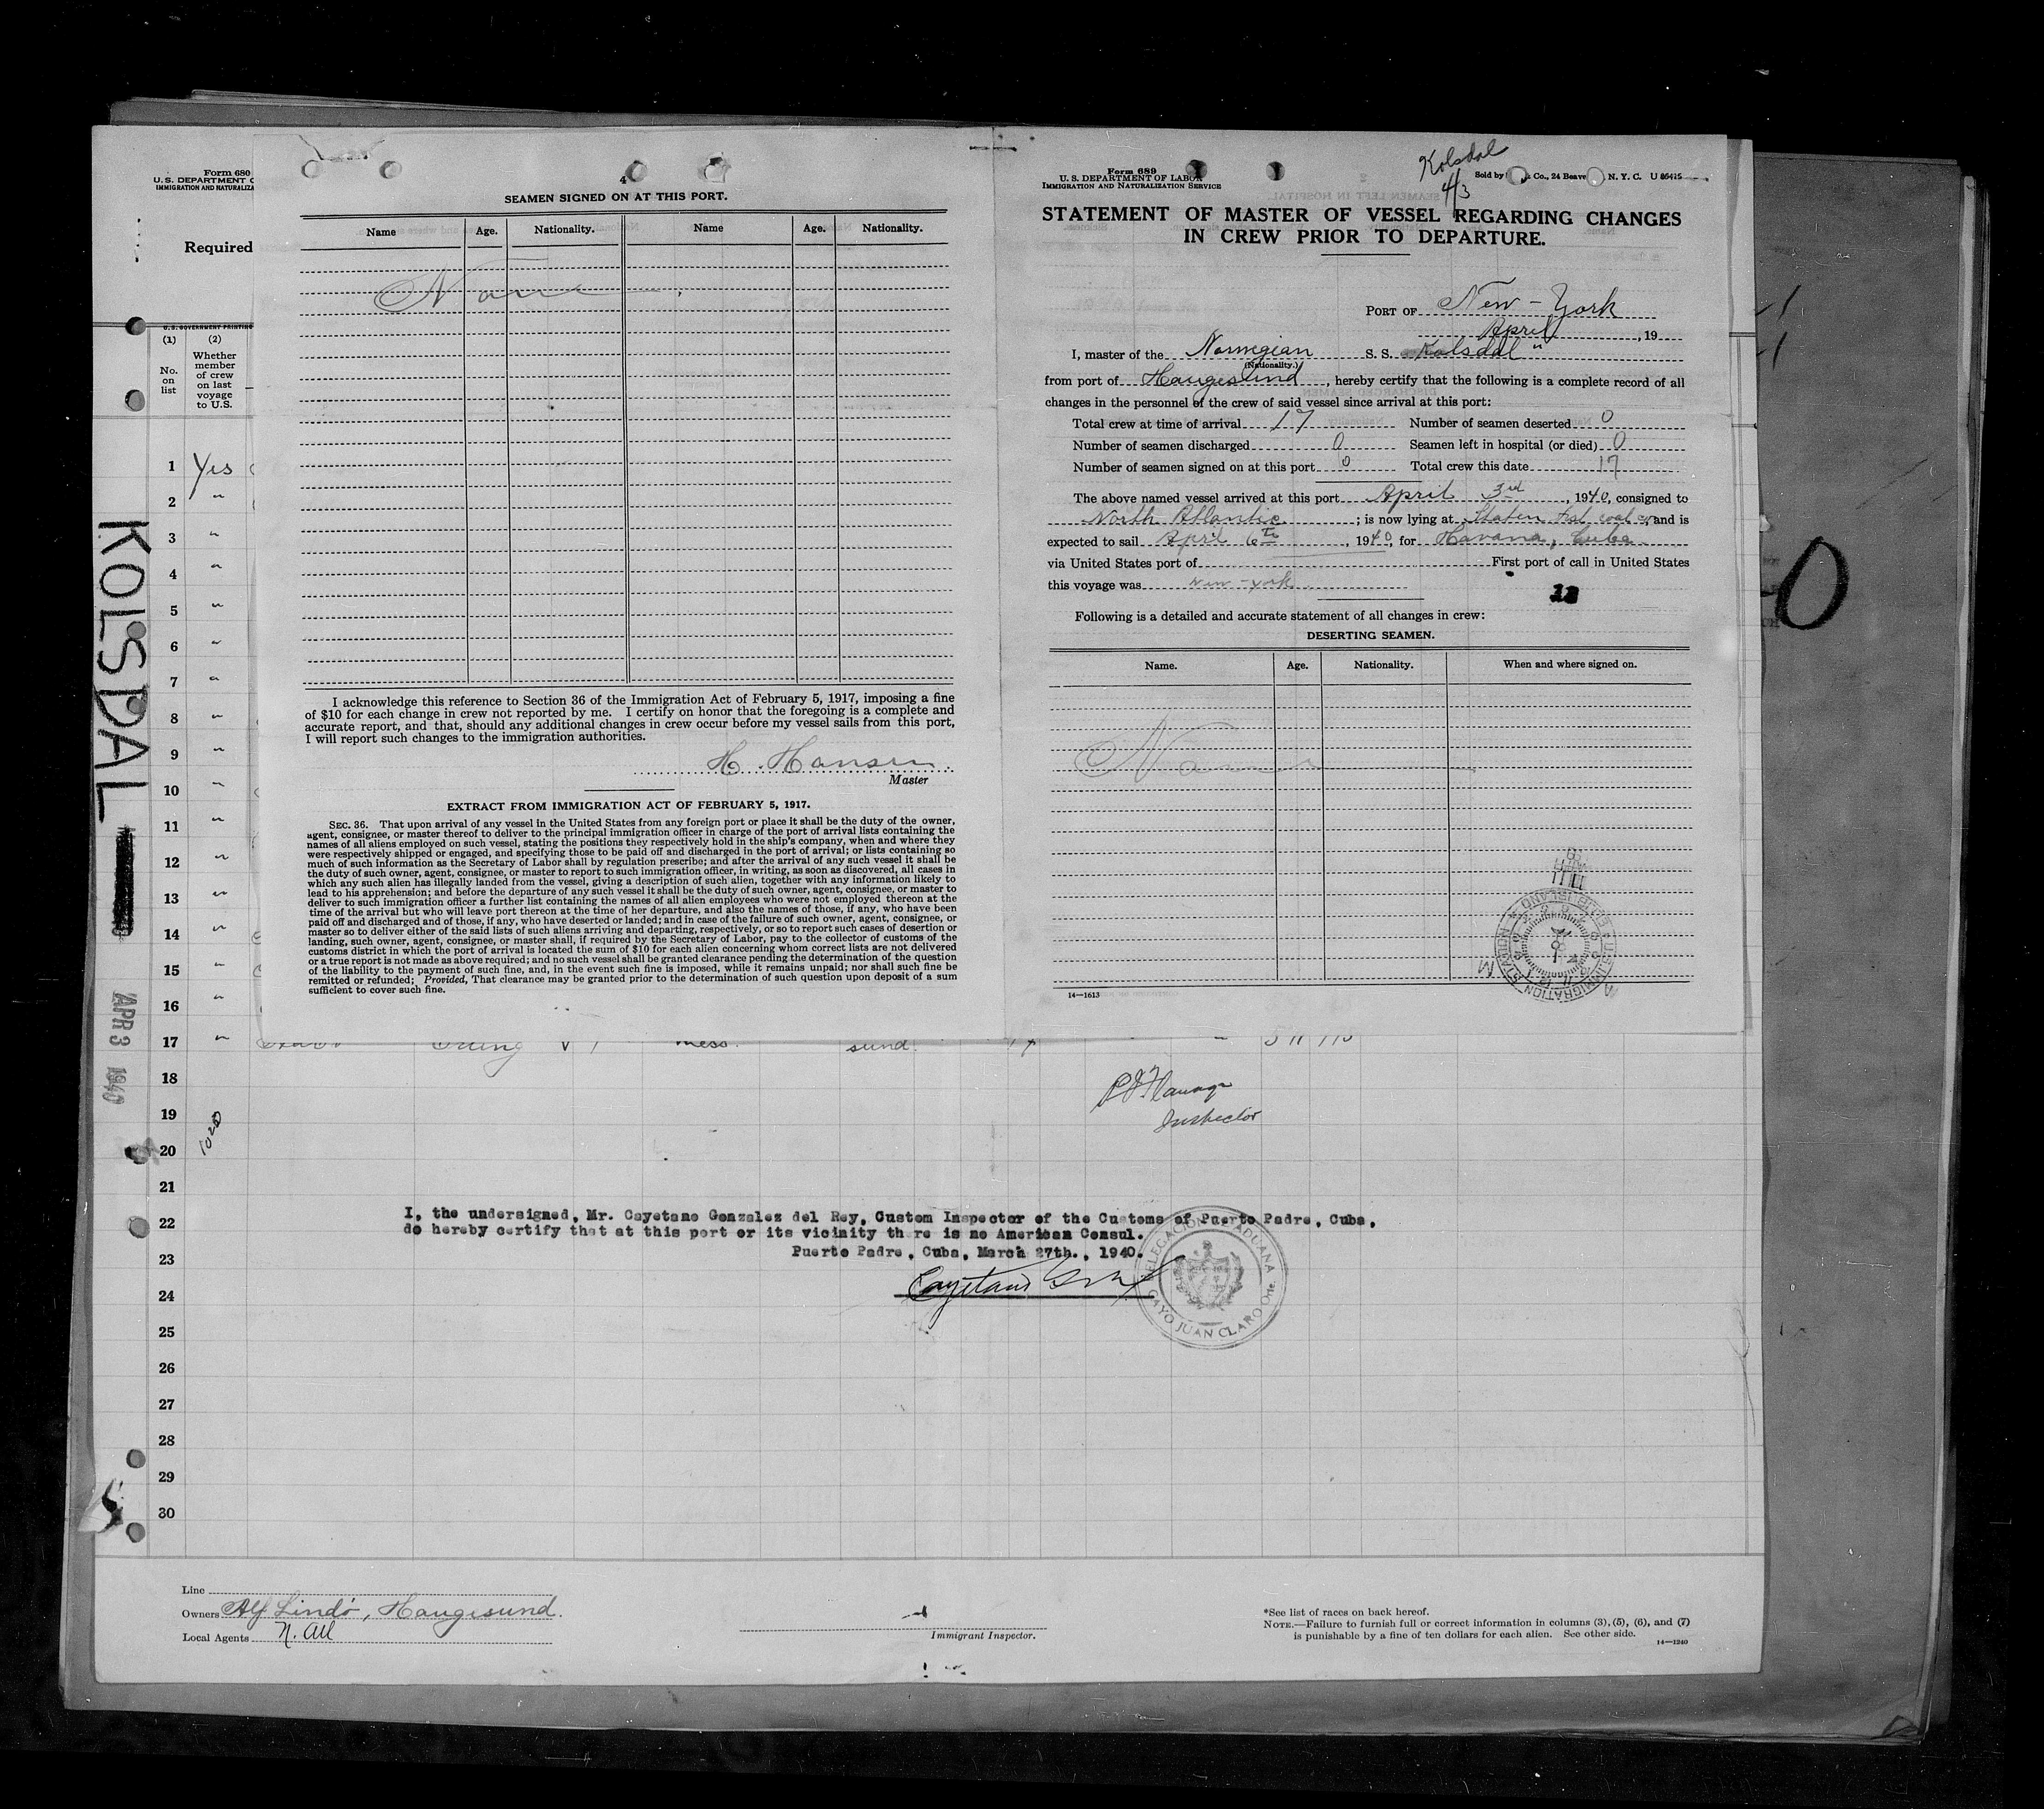 Form 680
U. S. DEPARTMENT O
IMMIGRATION AND NATURALIZA
Required
U. S. GOVERNMENT PRINTING
(1)
No.
on
list
(2)
Whether
member
of crew
on last
voyage
to U.S.
1 Yes
2 "
3 "
4 "
5 "
6 "
7 "
8 "
9 "
10 "
11 "
12 "
13 "
14 "
15 "
16 "
17 "
18
19
20
21
22
23
24
25
26
27
28
29
30
KOLSDAL
APR 3 1940
1020
4
SEAMEN SIGNED ON AT THIS PORT.
Name Age. Nationality. Name Age. Nationality.
None
I acknowledge this reference to Section 36 of the Immigration Act of February 5, 1917, imposing a fine
of $10 for each change in crew not reported by me. I certify on honor that the foregoing is a complete and
accurate report, and that, should any additional changes in crew occur before my vessel sails from this port,
I will report such changes to the immigration authorities.
H. Hansen
Master
EXTRACT FROM IMMIGRATION ACT OF FEBRUARY 5, 1917.
SEC. 36. That upon arrival of any vessel in the United States from any foreign port or place it shall be the duty of the owner,
agent, consignee, or master thereof to deliver to the principal immigration officer in charge of the port of arrival lists containing the
names of all aliens employed on such vessel, stating the positions they respectively hold in the ship's company, when and where they
were respectively shipped or engaged, and specifying those to be paid off and discharged in the port of arrival; or lists containing so
much of such information as the Secretary of Labor shall by regulation prescribe; and after the arrival of any such vessel it shall be
the duty of such owner, agent, consignee, or master to report to such immigration officer, in writing, as soon as discovered, all cases in
which any such alien has illegally landed from the vessel, giving a description of such alien, together with any information likely to
lead to his apprehension; and before the departure of any such vessel it shall be the duty of such owner, agent, consignee, or master to
deliver to such immigration officer a further list containing the names of all alien employees who were not employed thereon at the
time of the arrival but who will leave port thereon at the time of her departure, and also the names of those, if any, who have been
paid off and discharged and of those, if any, who have deserted or landed; and in case of the failure of such owner, agent, consignee, or
master so to deliver either of the said lists of such aliens arriving and departing, respectively, or so to report such cases of desertion or
landing, such owner, agent, consignee, or master shall, if required by the Secretary of Labor, pay to the collector of customs of the
customs district in which the port of arrival is located the sum of $10 for each alien concerning whom correct lists are not delivered
or a true report is not made as above required; and no such vessel shall be granted clearance pending the determination of the question
of the liability to the payment of such fine, and, in the event such fine is imposed, while it remains unpaid; nor shall such fine be
remitted or refunded; Provided, That clearance may be granted prior to the determination of such question upon deposit of a sum
sufficient to cover such fine.
Form 689
U. S. DEPARTMENT OF LABOR
IMMIGRATION AND NATURALIZATION SERVICE
Kolsdal
4/3
Sold by Co., 24 Beave N. Y. C. U
STATEMENT OF MASTER OF VESSEL REGARDING CHANGES
IN CREW PRIOR TO DEPARTURE.
PORT OF New-York
April, 19
I, master of the Norwegian S. S. Kolsdal"
(Nationality.)
from port of Haugesund, hereby certify that the following is a complete record of all
changes in the personnel of the crew of said vessel since arrival at this port:
Total crew at time of arrival 17 Number of seamen deserted 0
Number of seamen discharged 0 Seamen left in hospital (or died) 0
Number of seamen signed on at this port 0 Total crew this date 17
The above named vessel arrived at this port April 3rd, 1940, consigned to
North Atlantic; is now lying at Staten Isl coal co, and is
expected to sail April 6th, 1940, for Havana, Cuba
via United States port of First port of call in United States
this voyage was New-York
12
Following is a detailed and accurate statement of all changes in crew:
DESERTING SEAMEN.
Name. Age. Nationality. When and where signed on.
None
14—1613
mess. sund.
Inspector
I, the undersigned, Mr. Cayetano Gonzalez del Rey, Custom Inspector of the Customs of Puerto Padre, Cuba,
do hereby certify that at this port or its vicinity there is no American Consul.
Puerto Padre, Cuba, March 27th., 1940.
DELEGACION ADUANA
CAYO JUAN CLARO Ote.
Line
Owners Alf Lindö, Haugesund.
Local Agents N. Atl
Immigrant Inspector.
*See list of races on back hereof.
NOTE.—Failure to furnish full or correct information in columns (3), (5), (6), and (7)
is punishable by a fine of ten dollars for each alien. See other side.
14—1240